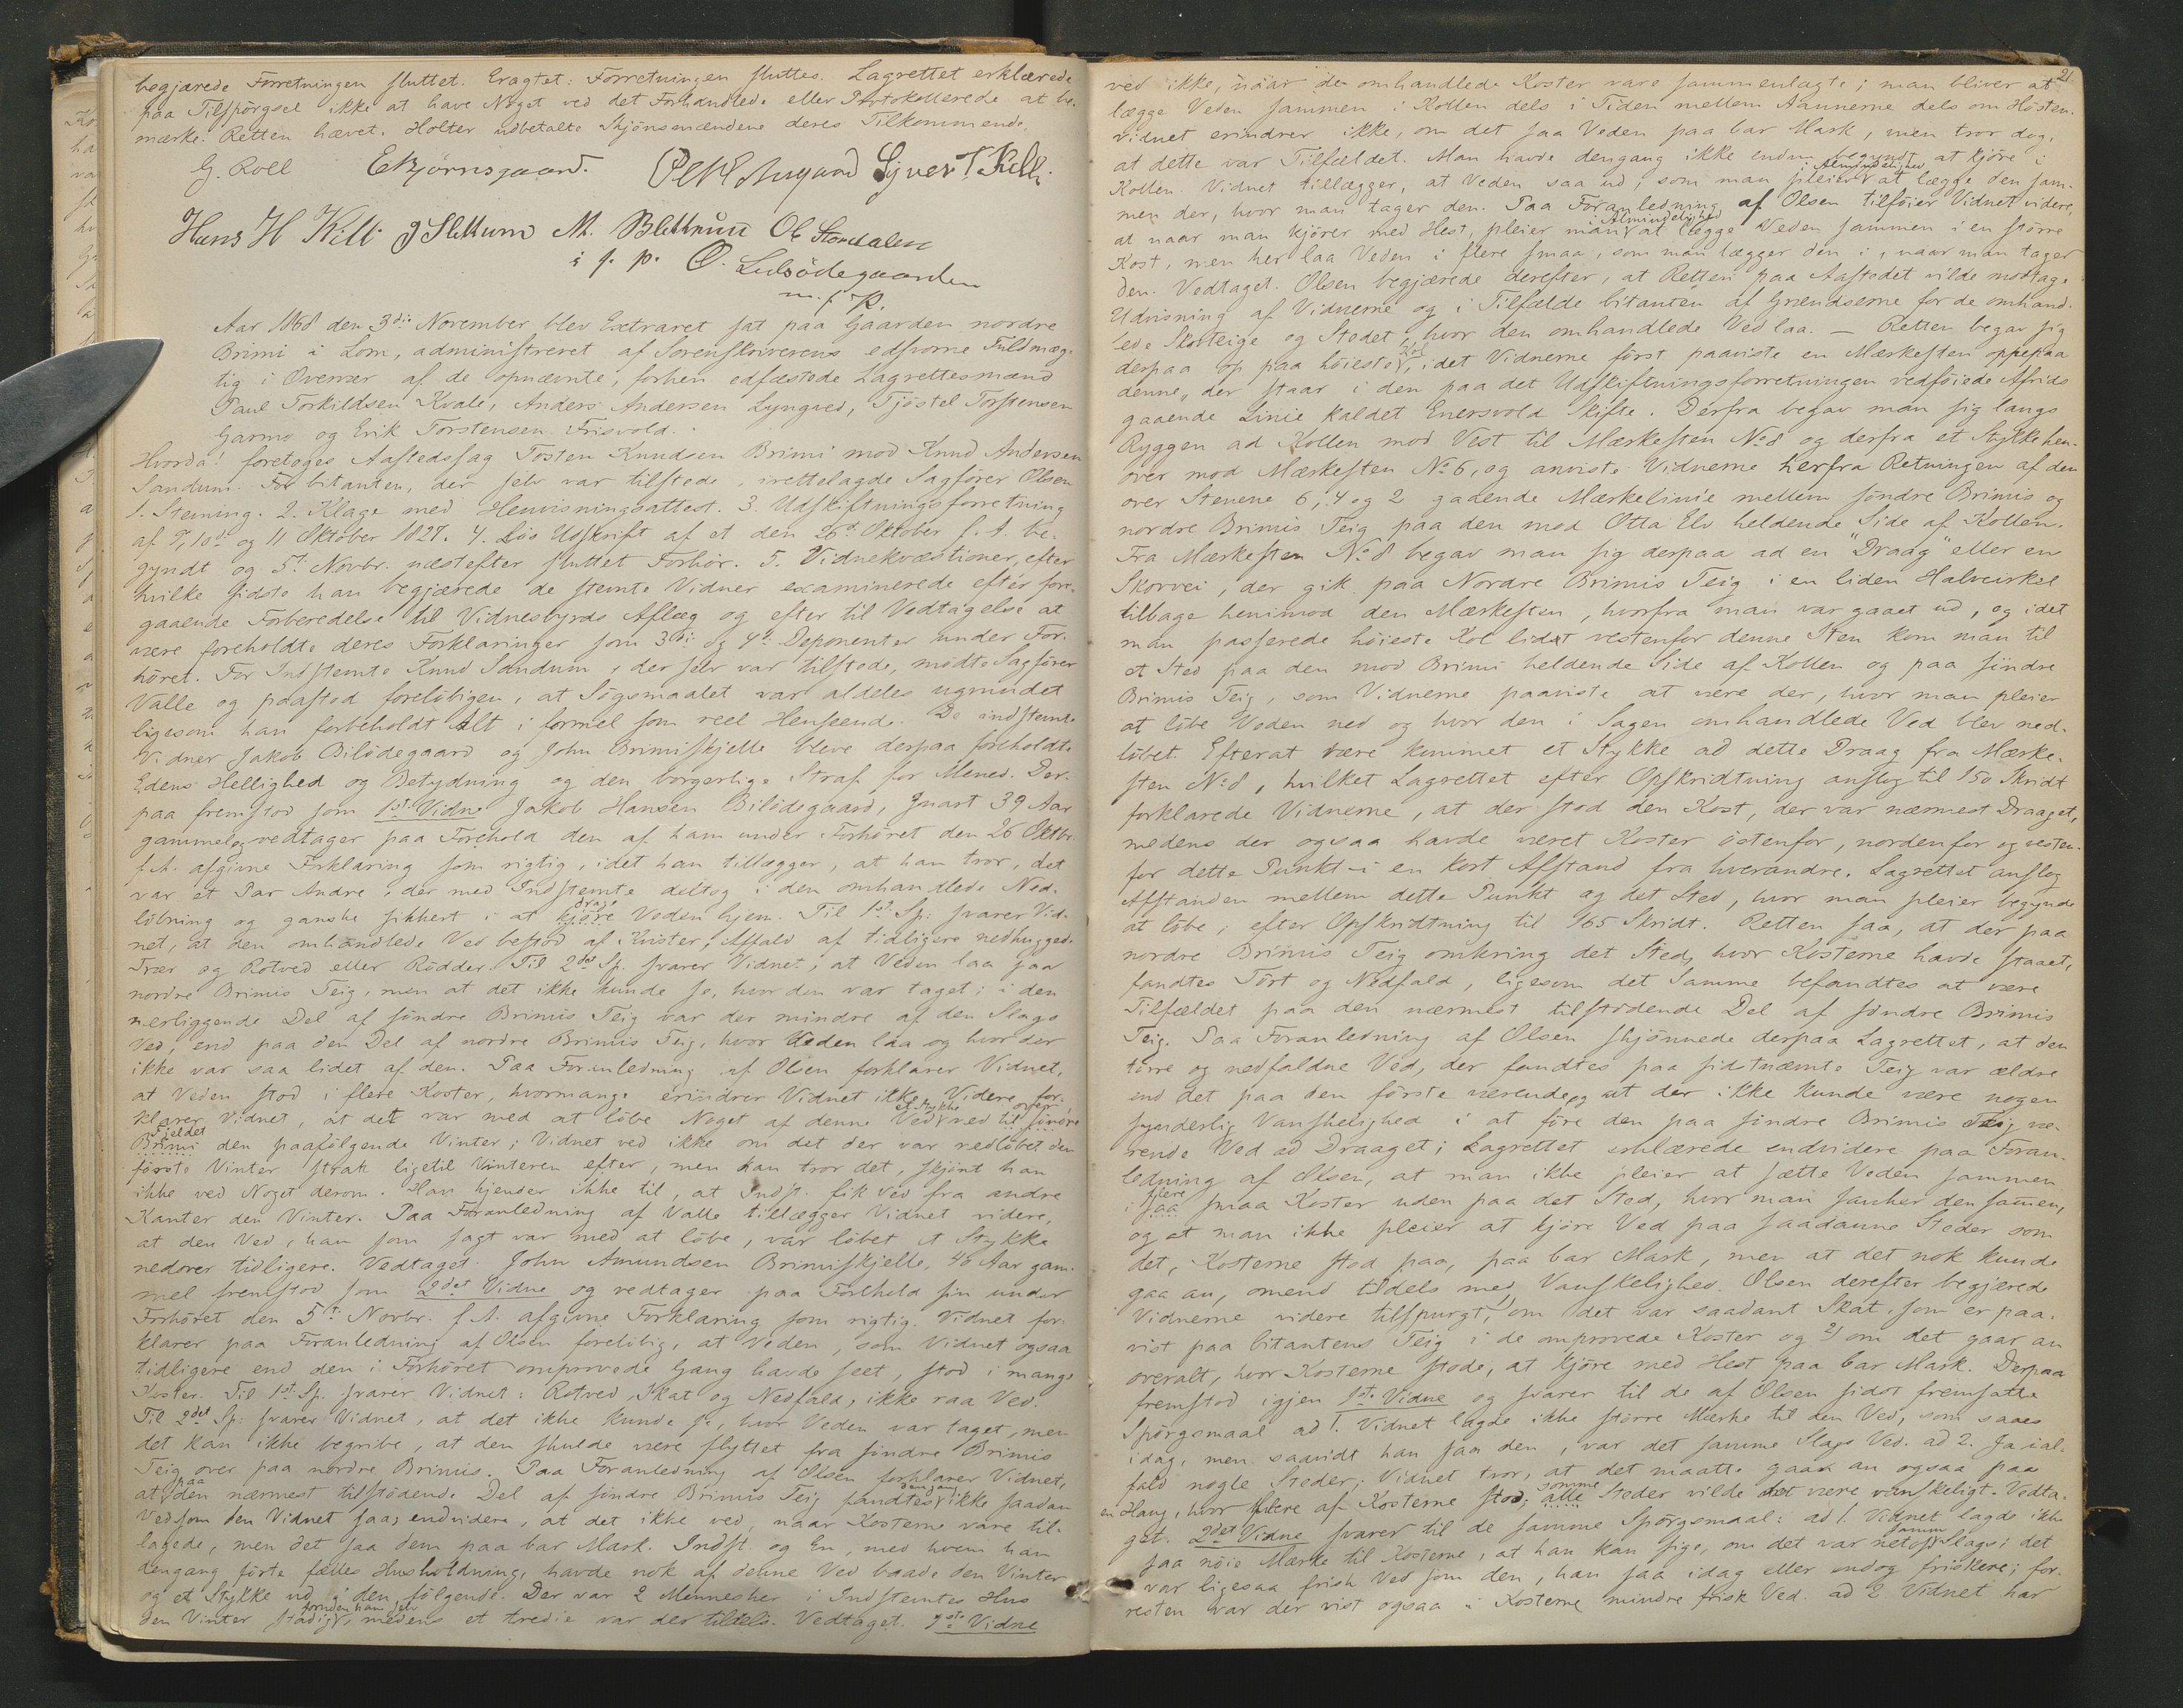 begjærede Forretningen sluttet. Eragtet: Forretningen sluttes. Lagrettet erklærede
paa Tilspörgsel ikke at have Noget ved det Forhandlede eller Protokollerede at be-
mærke. Retten hævet. Holter udbetalte Skjönsmændene deres Tilkommende.
G. Roll EBjörnsgaard. Syver T. Kilb.
Hans H Kilb M. Blekrud Ol Stordalen
i f. p. O.
m. f. P.
Aar 1868 den 3die November blev Extraret sat paa Gaarden nordre
Brimi i Lom, administreret af Sorenskriverens edsvorne Fuldmæg-
tig i Overvær af de opnævnte, forhen edfæstede Lagrettesmænd
Paul Torkildsen Kvale, Anders Andersen Lyngved, Tjöstel Torstensen
Garmo og Erik Torstensen Frisvold.
Hvorda! foretoges Aastedssag Tosten Knudsen Brimi mod Knud Andersen
Sandum. For Citanten, der selv var tilstede, irettelagde Sagförer Olsen
1. Stevning. 2. Klage med Henvisningsattest. 3. Udskiftningsforretning
af 9, 10de og 11 Oktober 1827. 4. Lös Udskrift af et den 26de Oktober f. A. be-
gyndt og 5te Novbr. næstefter sluttet Forhör. 5. Vidnekvæstioner, efter
hvilke sidste han begjærede de stevnte Vidner examinerede efter fore-
gaaende Forberedelse til Vidnesbyrds Aflæg og efter til Vedtagelse at
være foreholdte deres Forklaringer som 3die og 4de Deponenter under For-
höret. For Indstevnte Knud Sandum, der selv var tilstede, mödte Sagförer
Valle og paastod forelöbigen, at Sögsmaalet var aldeles ugrundet
ligesom han forbeholdt Alt i formel som reel Henseende. De indstevnte
Vidner Jakob Bilödegaard og John Brimiskjelle bleve derpaa foreholdte
Edens Hellighed og Betydning og den borgerlige Straf for Mened. Der-
paa fremstod som 1ste Vidne Jakob Hansen Bilödegaard, snart 39 Aar
gammel og vedtager paa Forehold den af ham under Forhöret den 26 Oktbr.
f. A. afgivne Forklaring som rigtig, idet han tillægger, at han tror, det
var et Par Andre, der med Indstevnte deltog i den omhandlede Ned-
löbning og ganske sikkert i at kjöre drage Veden hjem. Til 1ste Sp: svarer Vid-
net, at den omhandlede Ved bestod af Kvister, Affald af tidligere nedhuggede
Trær og Rotved eller Rödder. Til 2det Sp. svarer Vidnet, at Veden laa paa
nordre Brimis Teig, men at det ikke kunde se, hvor den var taget; i den
nærliggende Del af söndre Brimis Teig var der mindre af den Slags
Ved, end paa den Del af nordre Brimis Teig, hvor Veden laa og hvor der
ikke var saa lidet af den. Paa Foranledning af Olsen forklarer Vidnet,
at Veden stod i flere Koster, hvormange erindrer Vidnet ikke. Videre for-
klarer Vidnet, at det var med at löbe Noget af denne Ved et Stykke ned til söndre
Brimi Fjeldet den paafölgende Vinter; Vidnet ved ikke om det der var nedlöbet den
förste Vinter strak ligetil Vinteren efter, men han tror det, skjönt han
ikke ved Noget derom. Han kjender ikke til, at Indst. fik Ved fra andre
Kanter den Vinter. Paa Foranledning af Valle tillægger Vidnet videre,
at den Ved, han som sagt var med at löbe, var löbet et Stykke
nedover tidligere. Vedtaget. John Amundsen Brimiskjelle, 40 Aar gam-
mel fremstod som 2det Vidne og vedtager paa Forehold sin under
Forhöret den 5te Novbr. f. A. afgivne Forklaring som rigtig. Vidnet for-
klarer paa Foranledning af Olsen forelöbig, at Veden, som Vidnet ogsaa
tidligere end den i Forhöret omprovede Gang havde seet, stod i mange
Koster. Til 1ste Sp. svarer Vidnet: Rotved, Skat og Nedfald, ikke raa Ved.
Til 2det Sp: svarer Vidnet, at det ikke kunde se, hvor Veden var taget, men
det kan ikke begribe, at den skulde være flyttet fra söndre Brimis
Teig over paa nordre Brimis. Paa Foranledning af Olsen forklarer Vidnet,
at paa den nærmest tilstödende Del af söndre Brimis Teig fandtes dengang ikke saadan
Ved som den Vidnet saa; endvidere, at det ikke ved, naar Kosterne vare til-
lagede, men det saa dem paa bar Mark. Indst. og En, med hvem han
dengang förte fælles Husholdning, havde nok af denne Ved baade den Vinter
og et Stykke ud i den fölgende. Der var 2 Mennesker i Indstevntes Hus
den Vinter stadig foruden ham selv, medens et tredie var der tildels. Vedtaget. 1ste Vidne
21.
ved ikke, naar de omhandlede Koster vare sammenlagte; man bliver at
lægge Veden sammen i Kollen dels i Tiden mellem Aannerne dels om Hösten.
Vidnet erindrer ikke, om det saa Veden paa bar Mark, men tror dog,
at dette var Tilfældet. Man havde dengang ikke endnu begyndt at kjöre i
Kollen. Vidnet tillægger, at Veden saa ud, som man pleier i Almindelighed at lægge den sam-
men der, hvor man tager den. Paa Foranledning af Olsen tilföier Vidnet videre,
at naar man kjörer med Hest, pleier man i Almindelighed at lægge Veden sammen i en större
Kost, men her laa Veden i flere smaa, som man lægger den i, naar man tager
den. Vedtaget. Olsen begjærede derefter, at Retten paa Aastedet vilde modtage
Udvisning af Vidnerne og i Tilfælde Citanten af Grændserne for de omhand-
lede Skovteige og Stedet, hvor den omhandlede Ved laa. — Retten begav sig
derpaa op paa höieste Kol, idet Vidnerne först paaviste en Mærkesten oppepaa
denne, der staar i den paa det Udskiftningsforretningen vedföiede Afrids
gaaende Linie kaldet Enersvold Skifte. Derfra begav man sig langs
Ryggen ad Kollen mod Vest til Mærkesten No 8 og derfra et Stykke hen-
over mod Mærkesten No 6, og anviste Vidnerne herfra Retningen af den
over Stenene 6, 4 og 2 gaaende Mærkelinie mellem söndre Brimis og
nordre Brimis Teig paa den mod Otta Elv heldende Side af Kollen.
Fra Mærkesten No 8 begav man sig derpaa ad en "Draag" eller en
Skovvei, der gik paa Nordre Brimis Teig i en liden Halvcirkel
tilbage henimod den Mærkesten, hvorfra man var gaaet ud, og idet
man passerede höieste Kol lidet vestenfor denne Sten kom man til
et Sted paa den mod Brimi heldende Side af Kollen og paa söndre
Brimis Teig, som Vidnerne paaviste at være der, hvor man pleier
at löbe Veden ned og hvor den i Sagen omhandlede Ved blev ned-
löbet. Efterat være kommet et Stykke ad dette Draag fra Mærke-
sten No 8, hvilket Lagrettet efter Opskridtning anslog til 150 Skridt
forklarede Vidnerne, at der stod den Kost, der var nærmest Draaget,
medens der ogsaa havde været Koster östenfor, nordenfor og vesten-
for dette Punkt i en kort Afstand fra hverandre. Lagrettet anslog
Afstanden mellem dette Punkt og det Sted, hvor man pleier begynde
at löbe, efter Opskridtning til 165 Skridt. Retten saa, at der paa
nordre Brimis Teig omkring det Sted, hvor Kosterne havde staaet,
fandtes Tört og Nedfald, ligesom det Samme befandtes at være
Tilfældet paa den nærmest tilstödende Del af söndre Brimis
Teig. Paa Foranledning af Olsen skjönnede derpaa Lagrettet, at den
törre og nedfaldne Ved, der fandtes paa sidstnævnte Teig var ældre
end det paa den förste værende, og at der ikke kunde være nogen
synderlig Vanskelighed i at före den paa söndre Brimis Teig væ-
rende Ved ad Draaget; Lagrettet erklærede endvidere paa Foran-
ledning af Olsen, at man ikke pleier at sætte Veden sammen
i saa flere smaa Koster uden paa det Sted, hvor man sanker den sammen,
og at man ikke pleier at kjöre Ved paa saadanne Steder som
det, Kosterne stod paa, paa bar Mark, men at det nok kunde
gaa an, omend tildels med Vanskelighed. Olsen derefter begjærede
Vidnerne videre tilspurgt, om det var saadant Skat, som er paa-
vist paa Citantens Teig i de omprovede Koster og 2) om det gaar an
overalt, hvor Kosterne stode, at kjöre med Hest paa bar Mark. Derpaa
fremstod igjen 1ste Vidne og svarer til de af Olsen sidst fremsatte
Spörgsmaal ad 1. Vidnet lagde ikke större Mærke til den Ved, som saaes
idag, men saavidt han saa den, var det samme Slags Ved. ad 2. Ja ial-
fald nogle Steder; Vidnet tror, at det maatte gaa an ogsaa paa
en Haug, hvor flere af Kosterne stod; alle somme Steder vilde det være vanskeligt. Vedta-
get. 2det Vidne svarer til de samme Spörgsmaal: ad 1. Vidnet lagde ikke
saa nöie Mærke til Kosterne, at han kan sige, om det var netop samme Slags; det
var ligesaa frisk Ved som den, han saa idag eller endog friskere; for-
resten var der vist ogsaa i Kosterne mindre frisk Ved. ad 2 Vidnet har